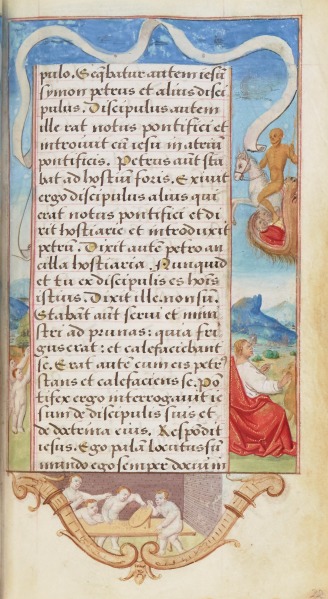 pulo. Seq̃batur autem iesũ
symon petrus et alius disci
pulus. Discipulus autem
ille erat notus pontifici et
introiuit cũ iesu in atriũ
pontificis. Petrus aut̃ sta
bat ad hostiũ foris. Exiuit
ergo discipulus alius qui
erat notus pontifici et di
xit hostiarie et introduxit
petrũ. Dixit autẽ petro an
cilla hostiaria. Nunquid
et tu ex discipulis es hoĩs
istius. Dixit ille. non sũ.
Stabãt aut̃ serui et mini
stri ad prunas: quia fri
gus erat: et calefaciebant
se. Erat autẽ cum eis petrꝰ
stans et calefaciens se. Po
tifex ergo interrogauit ie
sum de discipulis suis et
de doctrina eius. Respõdit
iesus. Ego palã locutus sũ
mundo ego semper docui in